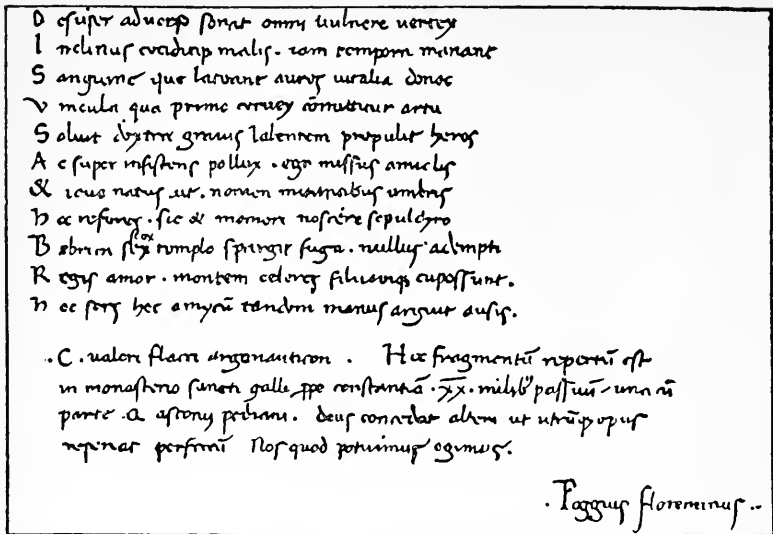 D esuper aduersi sonat omni uulnere uertex
I nclinus ceciditqƺ malis. iam tempora manant
S anguine que lauant aures uitalia donec
V incula qua primo ceruex cōmittitur artu
S oluit dextra grauis labentem propulit heros
A c super insistens pollux. ego missus amiclis
& ioue natus ait. nomen mirantibus umbris
h oc referes. sic & memori noscere sepulchro
B ebricas templo spargit fuga. nullus adempti
R egis amor. montem celeres siluamqƺ capessunt.
h ec sors hec amycū tandem manus arguit ausis.
.C. ualeri flacci argonauticon. Hoc fragmentū repertū est
in monasterio sancti galli ꝓpe constantiā .xx. milibꝰ passuū una cū
parte .Q. asconii pediani. Deus concedat alteri ut utrūqƺ opus
reperiat perfectū Nos quod potuimus egimus.
. Poggius florentinus ..